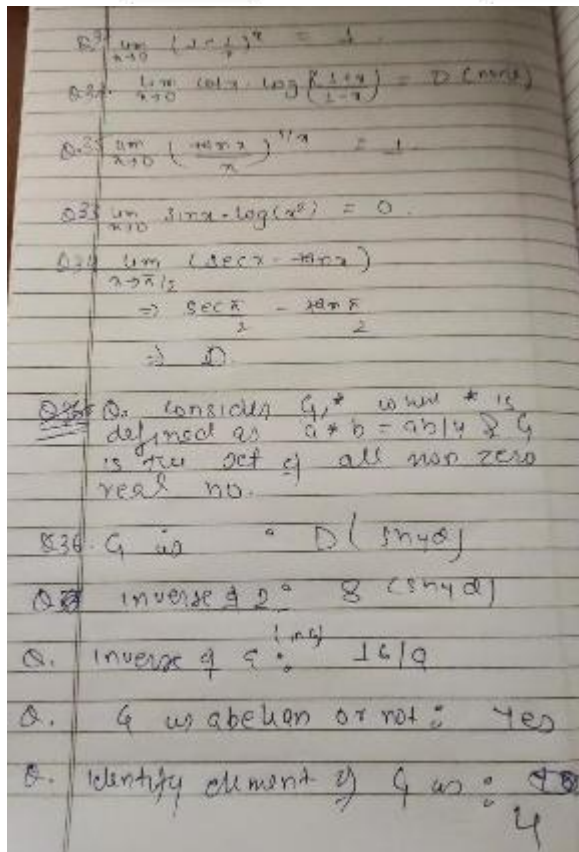 lim x→0 ( )^x = 1.
lim x→0 cotx. log (1+x / 1-x) = D (none)
Q.3 lim x→0 (tan x / x)^1/x = 1
Q33 lim x→0 sinx. log(x²) = 0.
Q34 lim x→π/2 (secx - tanx)
⇒ sec π/2 - tan π/2
⇒ D
Q. consider G,* where * is
defined as a * b = ab/4 & G
is the set of all non zero
real no.
Q36. G is : D
inverse of 2 : 8
Q. inverse of : 16/
Q. G is abelian or not : Yes
Q. Identity element of G is :
4